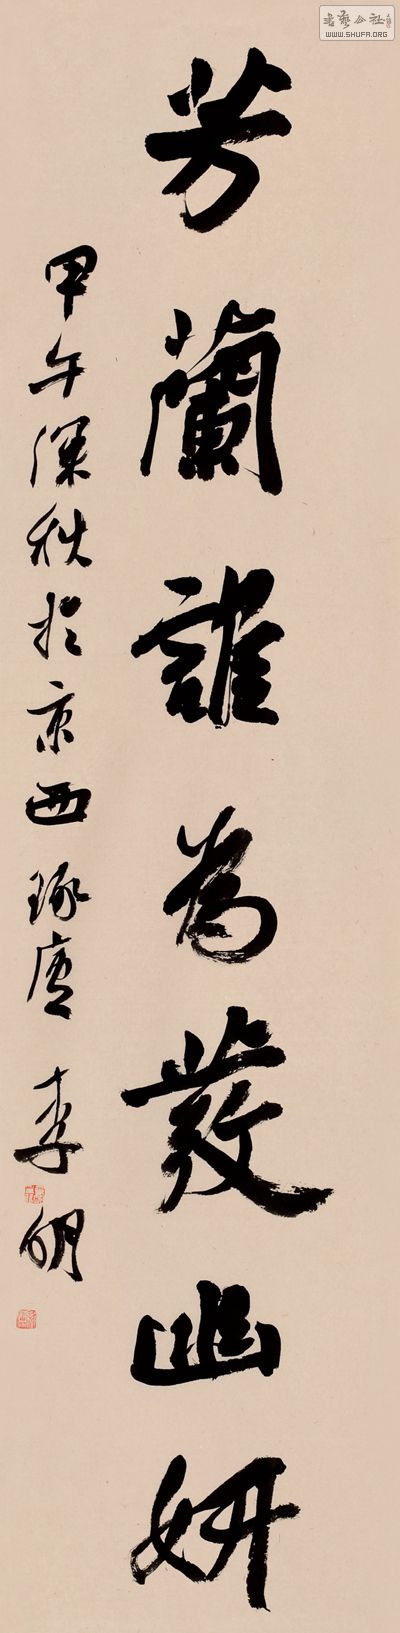 芳蘭誰為發幽妍
甲午深秋於京西琢廬 李明
書藝公社
WWW.SHUFA.ORG